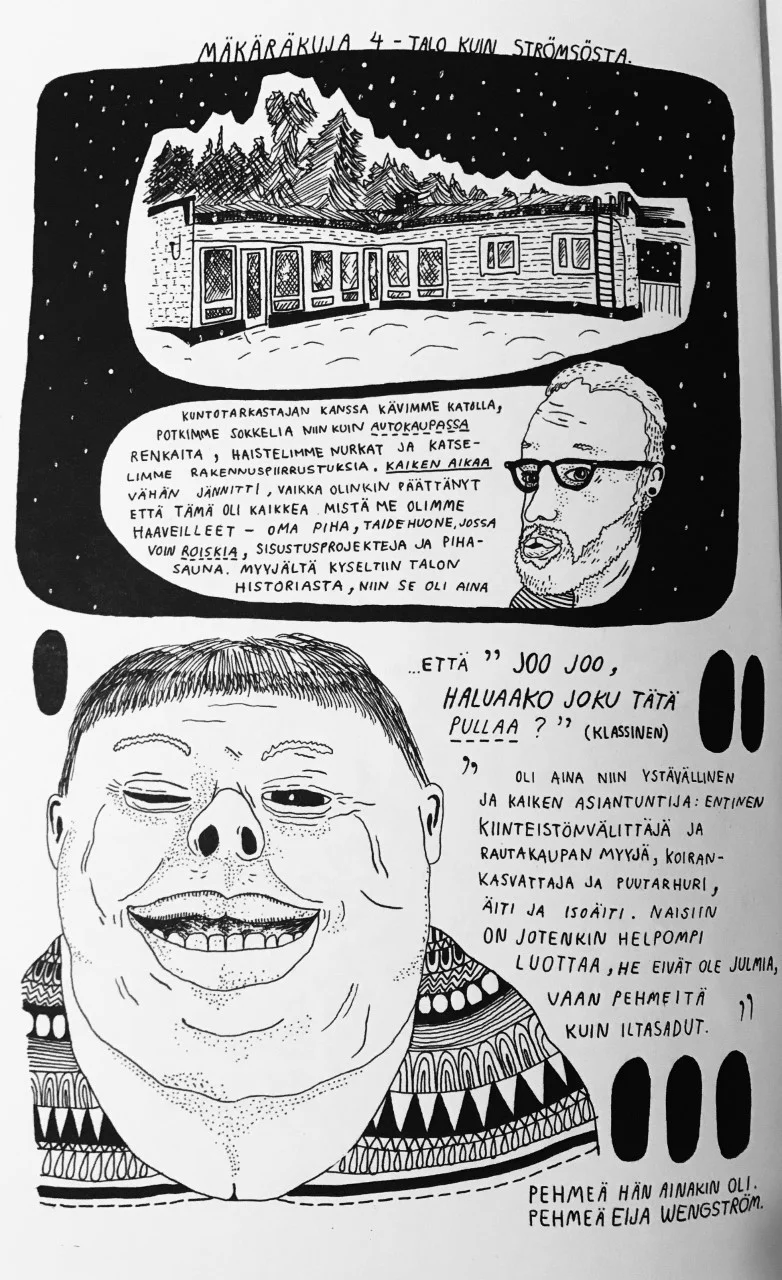 MÄKÄRÄKUJA 4 - TALO KUIN STRÖMSÖSTA.
KUNTOTARKASTAJAN KANSSA KÄVIMME KATOLLA,
POTKIMME SOKKELIA NIIN KUIN AUTOKAUPASSA
RENKAITA, HAISTELIMME NURKAT JA KATSE-
LIMME RAKENNUSPIIRRUSTUKSIA. KAIKEN AIKAA
VÄHÄN JÄNNITTI, VAIKKA OLINKIN PÄÄTTÄNYT
ETTÄ TÄMÄ OLI KAIKKEA MISTÄ ME OLIMME
HAAVEILLEET - OMA PIHA, TAIDEHUONE, JOSSA
VOIN ROISKIA, SISUSTUSPROJEKTEJA JA PIHA-
SAUNA. MYYJÄLTÄ KYSELTIIN TALON
HISTORIASTA, NIIN SE OLI AINA
...ETTÄ " JOO JOO,
HALUAAKO JOKU TÄTÄ
PULLAA ? " (KLASSINEN)
" OLI AINA NIIN YSTÄVÄLLINEN
JA KAIKEN ASIANTUNTIJA: ENTINEN
KIINTEISTÖNVÄLITTÄJÄ JA
RAUTAKAUPAN MYYJÄ, KOIRAN-
KASVATTAJA JA PUUTARHURI,
ÄITI JA ISOÄITI. NAISIIN
ON JOTENKIN HELPOMPI
LUOTTAA, HE EIVÄT OLE JULMIA,
VAAN PEHMEITÄ
KUIN ILTASADUT. "
PEHMEÄ HÄN AINAKIN OLI.
PEHMEÄ EIJA WENGSTRÖM.